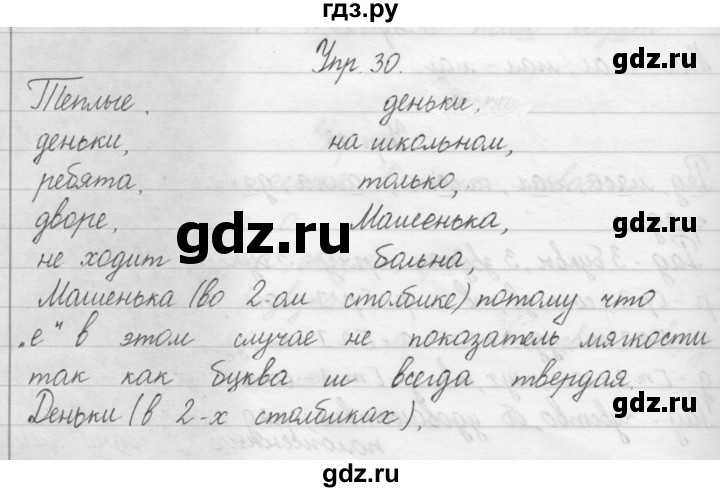 гдз.ру
Упр. 30.
Теплые. деньки.
деньки, на школьном,
ребята, только,
дворе, Машенька,
не ходит больна,
Машенька (во 2-ом столбике) потому что
„е" в этом случае не показатель мягкости
так как буква ш всегда твердая.
Деньки (в 2-х столбиках).
gdz.ru
gdz.ru
gdz.ru
gdz.ru
gdz.ru